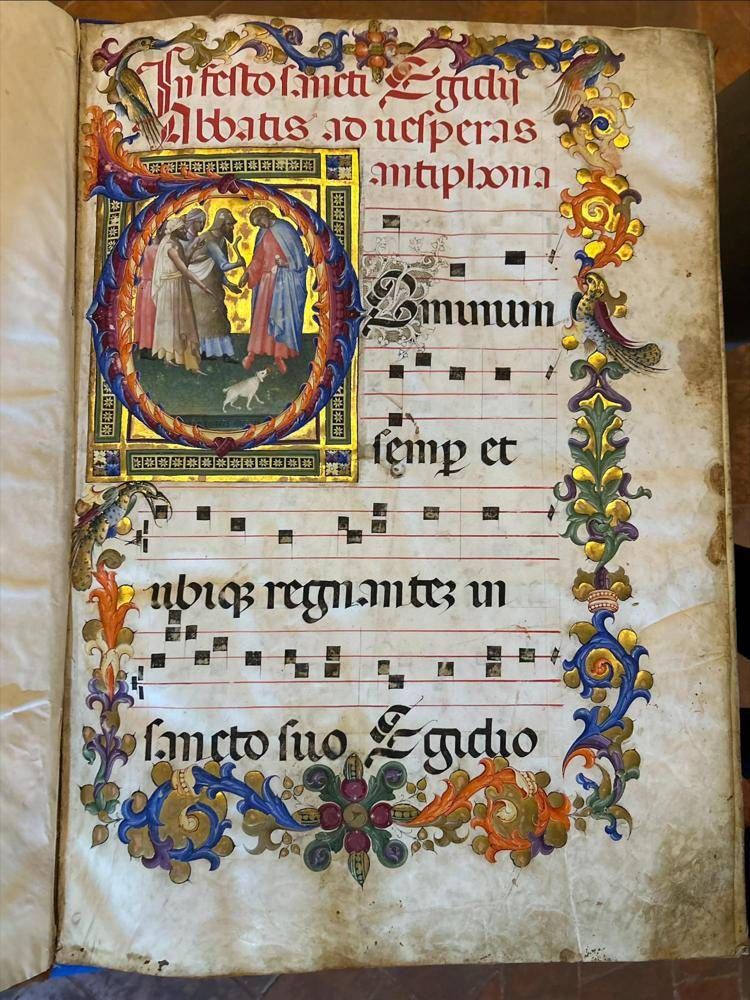 In festo sancti Egidij
Abbatis ad uesperas
antiphona
Dominum
semp et
ubiq regnantez in
sancto suo Egidio